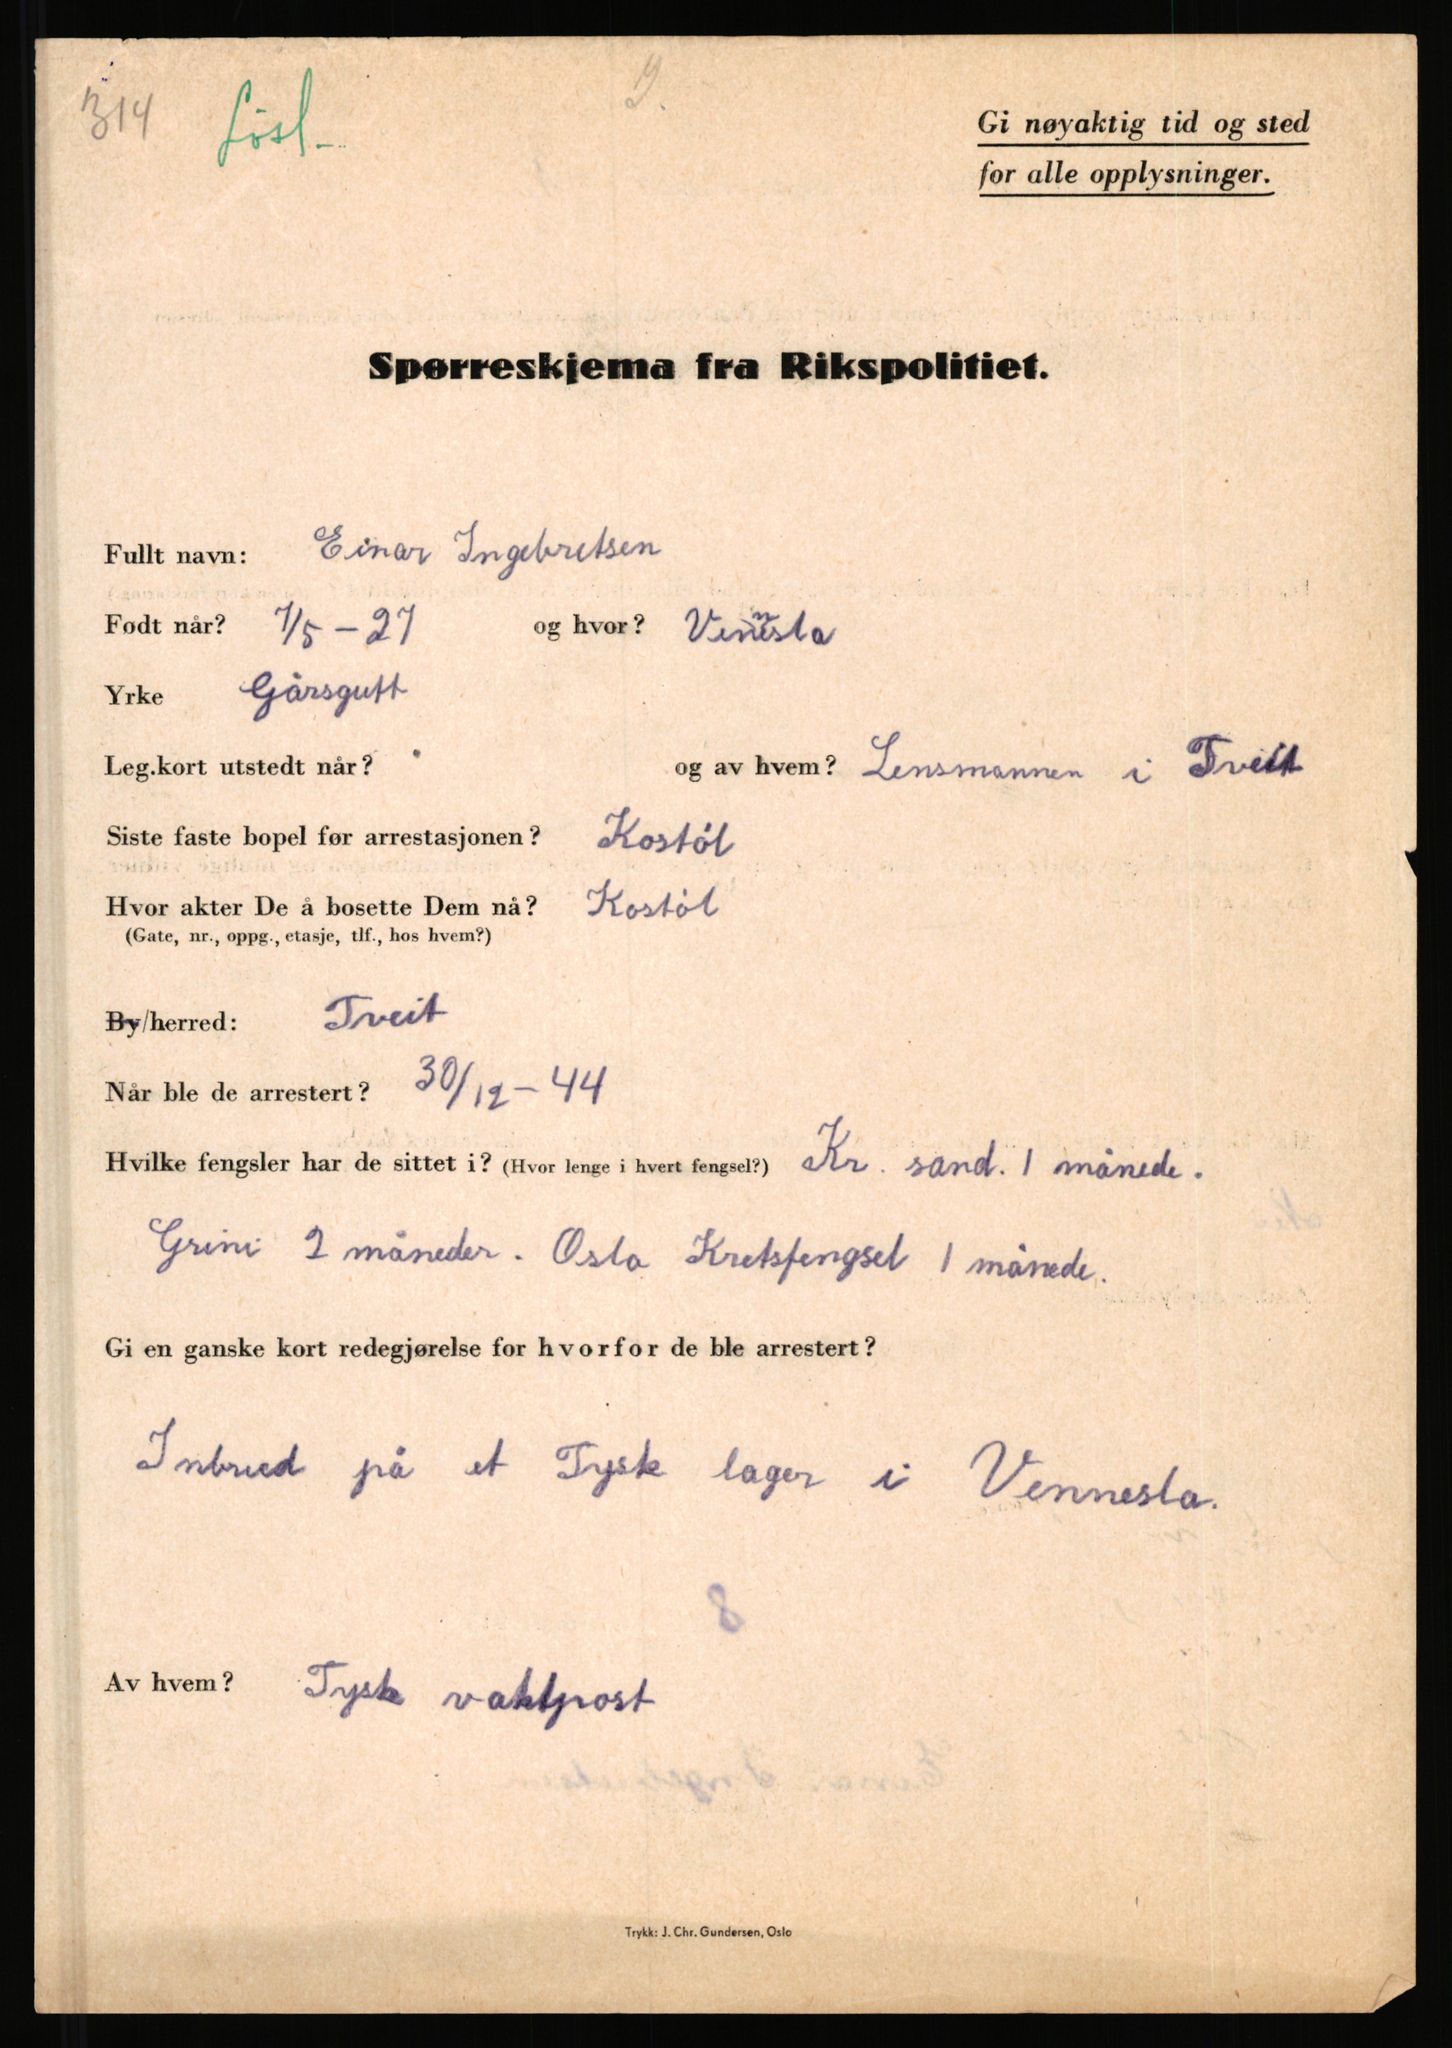 314 Lösl.
2.
Gi nøyaktig tid og sted
for alle opplysninger.
Spørreskjema fra Rikspolitiet.
Fullt navn: Einar Ingebretsen
Født når? 7/5 – 27 og hvor? Vennesla
Yrke Gårsgutt
Leg.kort utstedt når? og av hvem? Lensmannen i Tveit
Siste faste bopel før arrestasjonen? Kostöl
Hvor akter De å bosette Dem nå? Kostöl
(Gate, nr., oppg., etasje, tlf., hos hvem?)
By/herred: Tveit
Når ble de arrestert? 30/12 – 44
Hvilke fengsler har de sittet i? (Hvor lenge i hvert fengsel?) Kr. sand. 1 månede.
Grini 2 måneder. Oslo Kretsfengsel 1 månede.
Gi en ganske kort redegjørelse for hvorfor de ble arrestert?
Inbrud på et Tysk lager i Vennesla.
8
Av hvem? Tysk vaktpost
Trykk: J. Chr. Gundersen, Oslo